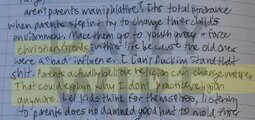 aren't parents manipulative? Its total ignorance
when parents step in & try to change thier child's
environment. Make them go to youth group & force
christian friends in thier life because the old ones
were a "bad" influence. I Can't Fucking stand that
shit. Parents actually believe religion can change matters.
That could explain why I don't practice religion
anymore. Let kids think for themselves, listening
to parents does no damned good but to mold thier